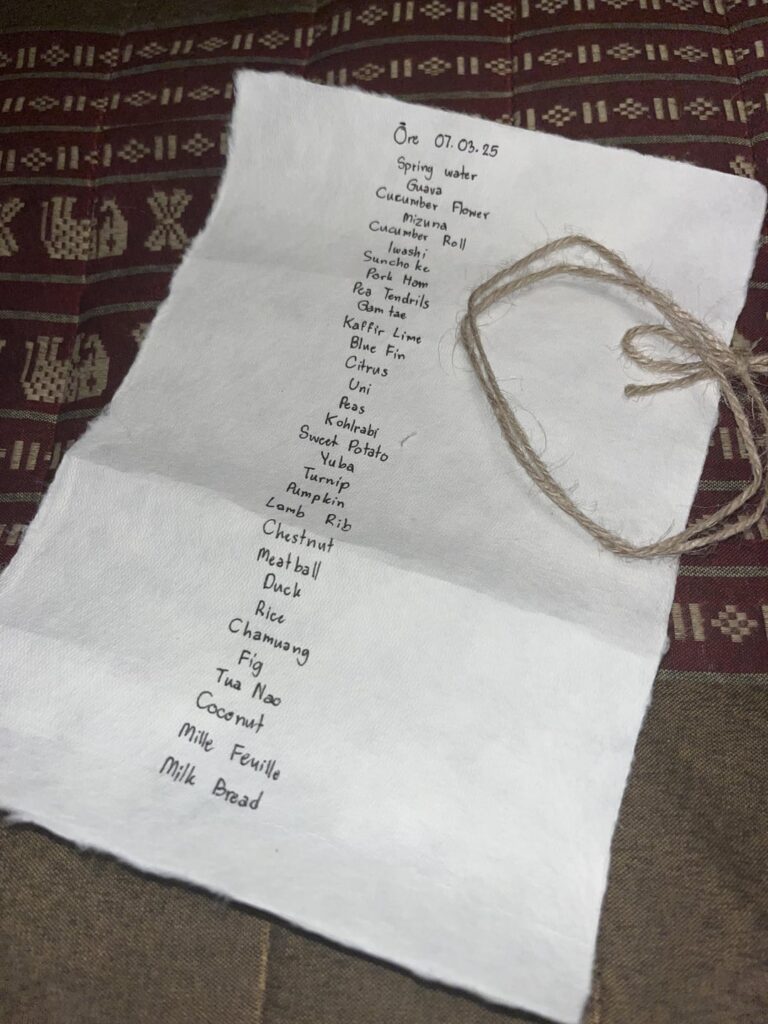 Ōre 07.03.25
Spring water
Guava
Cucumber Flower
Mizuna
Cucumber Roll
Iwashi
Sunchoke
Pork Hom
Pea Tendrils
Gamtae
Kaffir Lime
Blue Fin
Citrus
Uni
Peas
Kohlrabi
Sweet Potato
Yuba
Turnip
Pumpkin
Lamb Rib
Chestnut
Meatball
Duck
Rice
Chamuang
Fig
Tua Nao
Coconut
Mille Feuille
Milk Bread